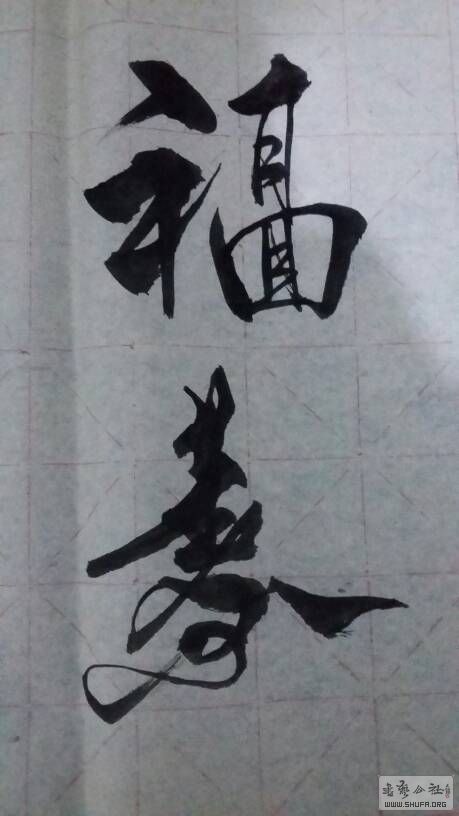 福
寿
书艺公社
WWW.SHUFA.ORG